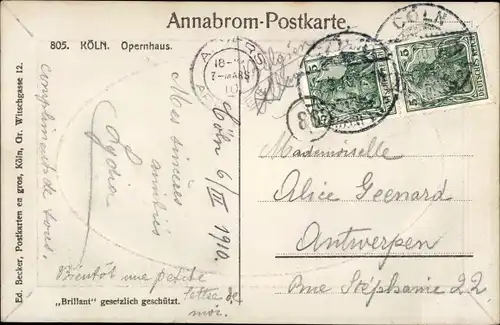 Annabrom-Postkarte.
805. KÖLN. Opernhaus.
Ed. Becker, Postkarten en gros, Köln, Gr. Witschgasse 12.
18-
7-MARS
10
CÖLN
5
5
80
Cöln 6/III 1910.
Mes sincères
amitiés
Lydia
compliments de tous.
Bientôt une petite
lettre de
moi.
Mademoiselle
Alice Geenard
Antwerpen
Rue Stéphanie 22
„Brillant" gesetzlich geschützt.